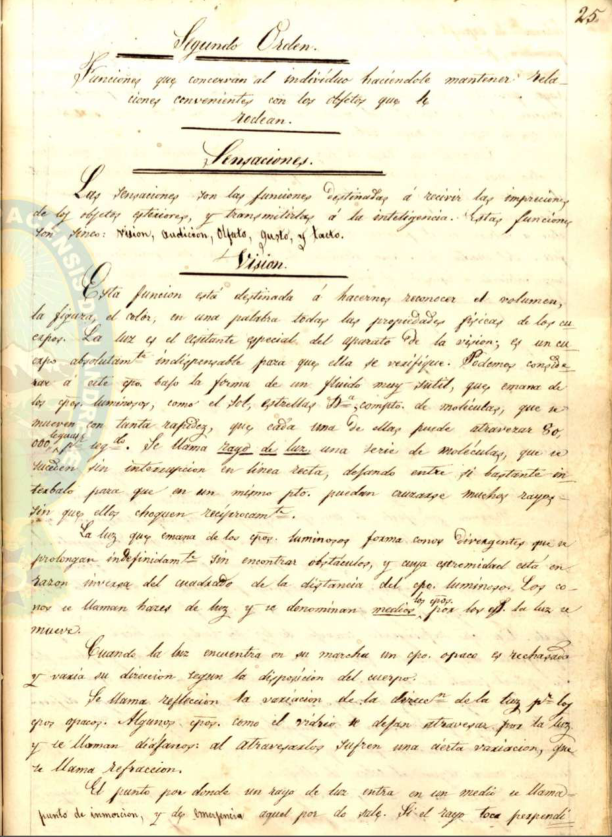 25.
Segundo Orden.
Funciones que concervan al individuo haciendole mantener rela-
ciones convenientes con los objetos que le
rodean.
Sensaciones.
Las sensaciones son las funciones destinadas á recivir las impreciones
de los objetos esteriores, y transmitirlas á la inteligencia. Estas funciones
son sinco: vision, audicion, olfato, gusto, y tacto.
Vision.
Esta funcion está destinada á hacernos reconocer el volumen,
la figura, el color, en una palabra todas las propiedades fisicas de los cu-
erpos. La luz es el esitante especial del aparato de la vision; es un cu-
erpo absolutamte indispensable para que ella se verifique. Podemos conside-
rar á este cpo. bajo la forma de un fluido muy sutil, que emana de
los cpos. luminosos, como el sol, estrellas &a, compto. de moléculas, que se
mueven con tanta rapidez, que cada una de ellas puede atravezar 80,
000, leguas pr segdo. Se llama rayo de luz una serie de moléculas, que se
suceden sin interrupcion en linea recta, dejando entre si bastante in-
terbalo para que en un mismo pto. puedan cruzarse muchos rayos,
sin que ellos choquen reciprocamte.
La luz que emana de los cpos. luminosos forma conos divergentes que se
prolongan indefinidamte sin encontrar obstáculos, y cuya estremidad está en
razon inversa del cuadrado de la distancia del cpo. luminoso. Los co-
nos se llaman hazes de luz y se denominan medios los cpos. por los qe. la luz se
mueve.
Cuando la luz encuentra en su marcha un cpo. opaco es rechasada
y varia su direccion segun la disposición del cuerpo.
Se llama reflección la variacion de la direcn. de la luz pr los
cpos opacos. Algunos cpos. como el vidrio se dejan atravesar por la luz
y se llaman diáfanos: al atravesarlos sufren una cierta variacion, que
se llama refraccion.
El punto por donde un rayo de luz entra en un medio se llama
punto de inmercion, y de emergencia aquel por do sale. Si el rayo toca perpendi